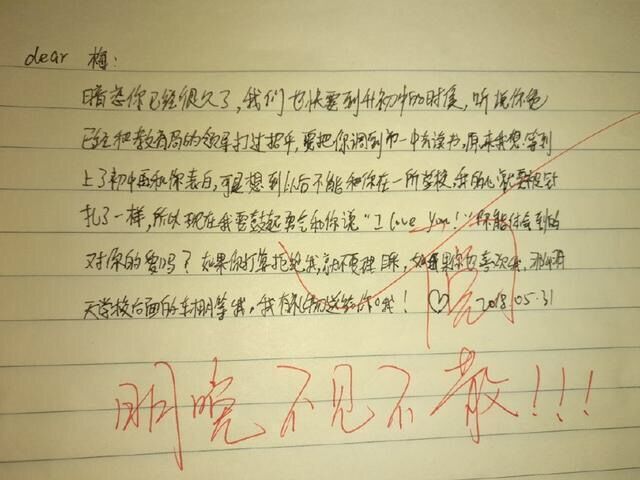 dear 梅：
暗恋你已经很久了，我们也快要到升初中的时候，听说你爸
已经和教育局的领导打过招乎，要把你调到市一中去读书，原来我想等到
上了初中再和你表白，可是想到以后不能和你在一所学校，我的心就要被针
扎了一样，所以现在我要鼓起勇气和你说“I love you！”你能体会到我
对你的爱吗？如果你打算拒绝我，就不要理我，如果你也喜欢我，那明
天学校后面的车棚等我，我有礼物送给你哦！♡ 2018.05.31
阅
明晚不见不散！！！